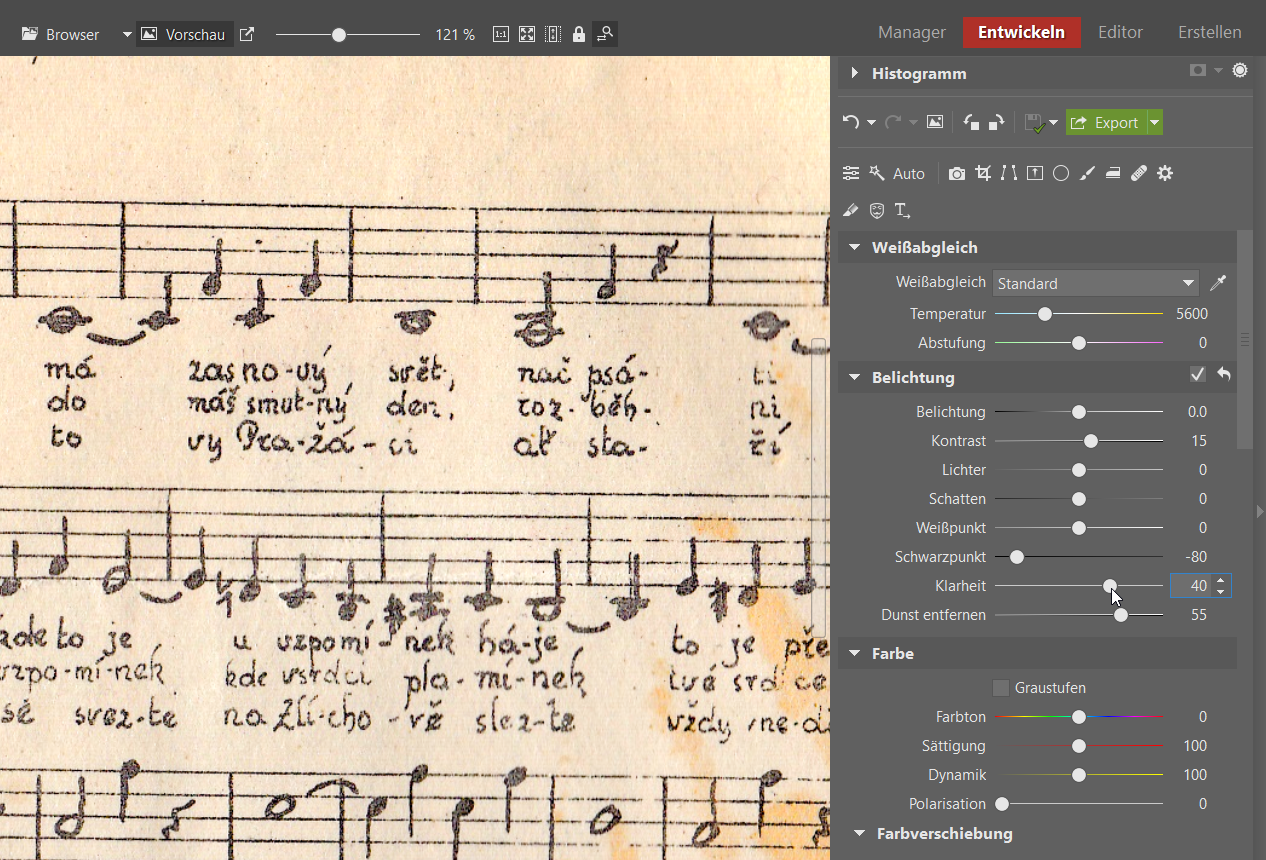 Browser
Vorschau
121 %
1:1
Manager
Entwickeln
Editor
Erstellen
Histogramm
Export
Auto
Weißabgleich
Weißabgleich Standard
Temperatur 5600
Abstufung 0
Belichtung
Belichtung 0.0
Kontrast 15
Lichter 0
Schatten 0
Weißpunkt 0
Schwarzpunkt -80
Klarheit 40
Dunst entfernen 55
Farbe
Graustufen
Farbton 0
Sättigung 100
Dynamik 100
Polarisation 0
Farbverschiebung
má zas no-vý svět, nač psá- ti
do máš smut-ný den, roz-běh- ni
to vy Pra-žá-ci ať sta- ří
kde to je u vzpomí-nek há-je to je pře
vzpo-mí-nek kde vsrdci pla-mí-nek tvé srd ce
sě svez-te na Zlí-cho-vě slez-te vždy